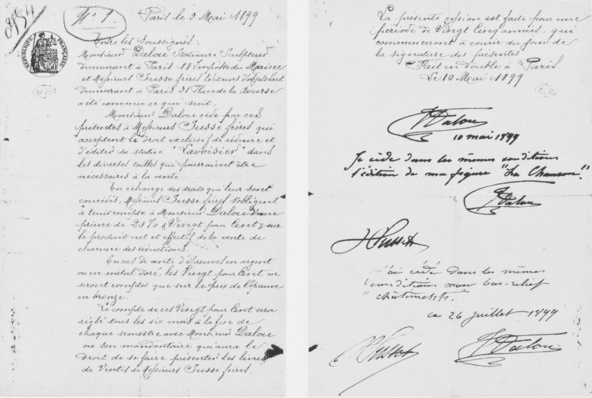 N° 1. Paris le 3 Mai 1899
Entre les Soussignés
Monsieur Dalou Statuaire Sculpteur
demeurant à Paris 18 Impasse du Maine
et Messieurs Susse frères
demeurant à Paris 31 de la Bourse
a été convenu ce qui suit.
Monsieur Dalou cède par ces
présentes à Messieurs Susse frères, qui
acceptent le droit exclusif de réduire et
d'éditer sa statue "Lavoisier" dans
les diverses tailles qui pourraient être
nécessaires à la vente.
En échange des droits qui leur sont
concédés, Messieurs Susse frères s'obligent
à Monsieur Dalou une
prime de 20 % Vingt pour Cent sur
le produit net et effectif de la vente de
chacune des réductions.
En cas de vente d'épreuves en argent
ou en métal doré, les Vingt pour Cent ne
seront comptés que sur le prix de l'épreuve
en bronze.
Le compte de ces Vingt pour Cent sera
réglé tous les six mois à la fin de
chaque semestre avec Monsieur Dalou
ou son mandataire qui aura le
Droit de se faire présenter les livres
de Ventes de Messieurs Susse frères.
La présente cession est faite pour une
période de Vingt Cinq années, qui
commenceront à courir du jour de
la signature des présentes.
Fait en double à Paris
le 10 Mai 1899
Dalou
10 mai 1899
Je cède dans les mêmes conditions
l'édition de ma figure "La Chanson".
Dalou
Susse
J'ai cédé dans les mêmes
conditions mon bas-relief
"Châtiments".
ce 26 juillet 1899
Susse Dalou